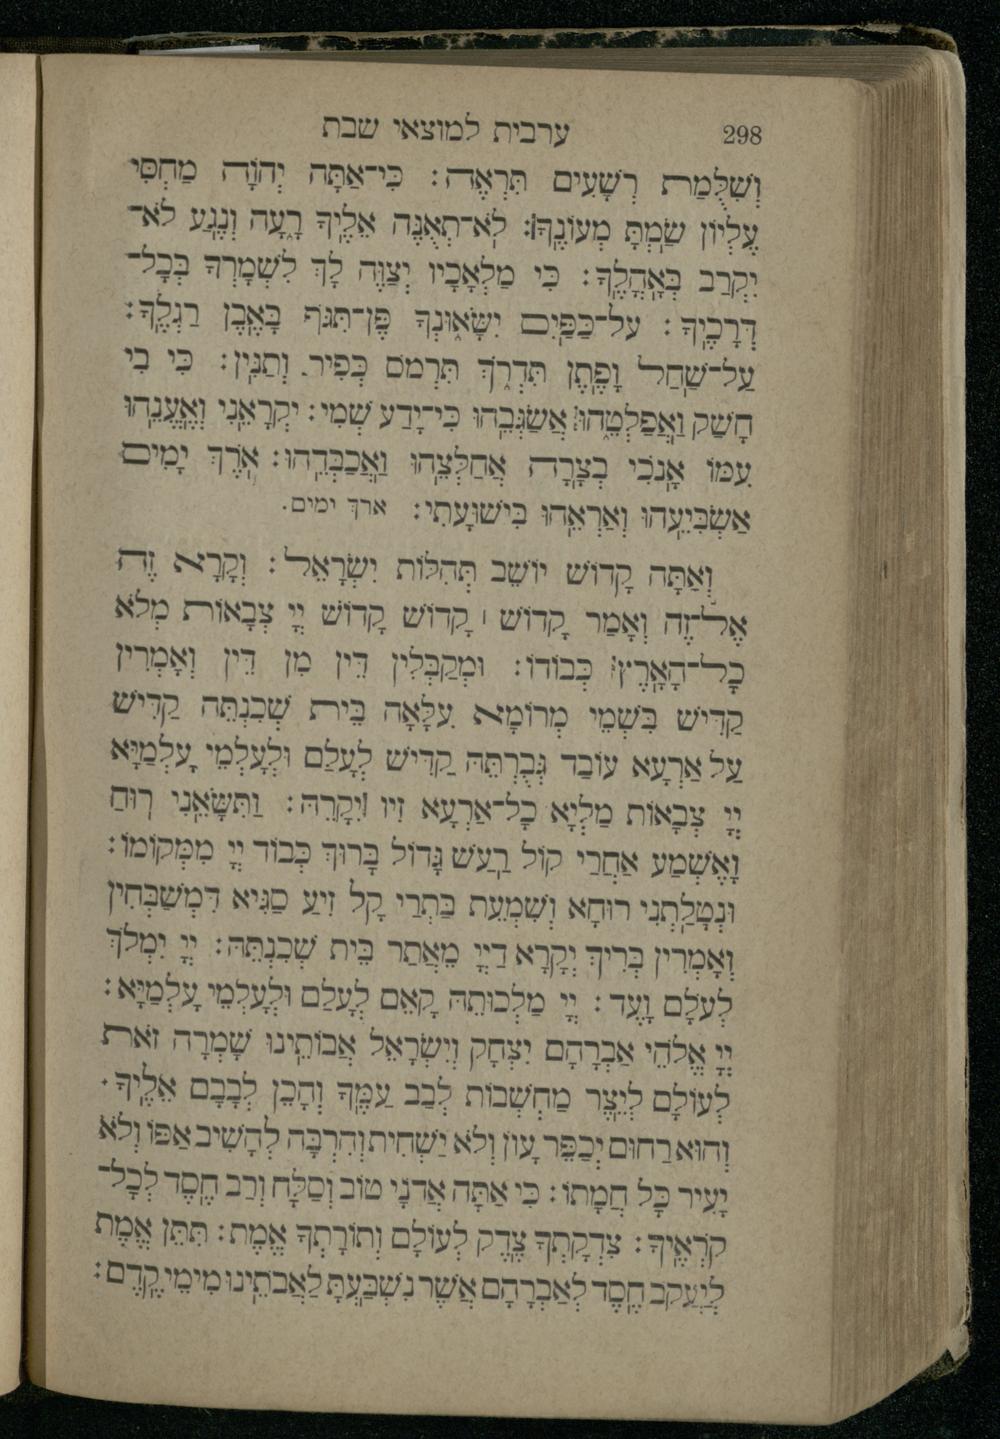 298 ערבית למוצאי שבת
וְשִׁלֻּמַת רְשָׁעִים תִּרְאֶה: כִּי־אַתָּה יְהוָֹה מַחְסִּי
עֶלְיוֹן שַׂמְתָּ מְעוֹנֶךָ: לֹא־תְאֻנֶּה אֵלֶיךָ רָעָה וְנֶגַע לֹא־
יִקְרַב בְּאָהֳלֶךָ: כִּי מַלְאָכָיו יְצַוֶּה לָּךְ לִשְׁמָרְךָ בְּכָל־
דְּרָכֶיךָ: עַל־כַּפַּיִם יִשָּׂאוּנְךָ פֶּן־תִּגֹּף בָּאֶבֶן רַגְלֶךָ:
עַל־שַׁחַל וָפֶתֶן תִּדְרֹךְ תִּרְמֹס כְּפִיר וְתַנִּין: כִּי בִי
חָשַׁק וַאֲפַלְּטֵהוּ אֲשַׂגְּבֵהוּ כִּי־יָדַע שְׁמִי: יִקְרָאֵנִי וְאֶעֱנֵהוּ
עִמּוֹ אָנֹכִי בְצָרָה אֲחַלְּצֵהוּ וַאֲכַבְּדֵהוּ: אֹרֶךְ יָמִים
אַשְׂבִּיעֵהוּ וְאַרְאֵהוּ בִּישׁוּעָתִי: ארך ימים.
וְאַתָּה קָדוֹשׁ יוֹשֵׁב תְּהִלּוֹת יִשְׂרָאֵל: וְקָרָא זֶה
אֶל־זֶה וְאָמַר קָדוֹשׁ ׀ קָדוֹשׁ קָדוֹשׁ יְיָ צְבָאוֹת מְלֹא
כָל־הָאָרֶץ כְּבוֹדוֹ: וּמְקַבְּלִין דֵּין מִן דֵּין וְאָמְרִין
קַדִּישׁ בִּשְׁמֵי מְרוֹמָא עִלָּאָה בֵּית שְׁכִנְתֵּהּ קַדִּישׁ
עַל אַרְעָא עוֹבַד גְּבֻרְתֵּהּ קַדִּישׁ לְעָלַם וּלְעָלְמֵי עָלְמַיָּא
יְיָ צְבָאוֹת מַלְיָא כָל־אַרְעָא זִיו יְקָרֵהּ: וַתִּשָּׂאֵנִי רוּחַ
וָאֶשְׁמַע אַחֲרַי קוֹל רַעַשׁ גָּדוֹל בָּרוּךְ כְּבוֹד יְיָ מִמְּקוֹמוֹ:
וּנְטָלַתְנִי רוּחָא וְשִׁמְעֵת בַּתְרַי קָל זִיעַ סַגִּיא דִּמְשַׁבְּחִין
וְאָמְרִין בְּרִיךְ יְקָרָא דַייָ מֵאֲתַר בֵּית שְׁכִנְתֵּהּ: יְיָ יִמְלֹךְ
לְעֹלָם וָעֶד: יְיָ מַלְכוּתֵהּ קָאֵם לְעָלַם וּלְעָלְמֵי עָלְמַיָּא:
יְיָ אֱלֹהֵי אַבְרָהָם יִצְחָק וְיִשְׂרָאֵל אֲבוֹתֵינוּ שָׁמְרָה זֹאת
לְעוֹלָם לְיֵצֶר מַחְשְׁבוֹת לְבַב עַמֶּךָ וְהָכֵן לְבָבָם אֵלֶיךָ.
וְהוּא רַחוּם יְכַפֵּר עָוֹן וְלֹא יַשְׁחִית וְהִרְבָּה לְהָשִׁיב אַפּוֹ וְלֹא
יָעִיר כָּל חֲמָתוֹ: כִּי אַתָּה אֲדֹנָי טוֹב וְסַלָּח וְרַב חֶסֶד לְכָל־
קֹרְאֶיךָ: צִדְקָתְךָ צֶדֶק לְעוֹלָם וְתוֹרָתְךָ אֱמֶת: תִּתֵּן אֱמֶת
לְיַעֲקֹב חֶסֶד לְאַבְרָהָם אֲשֶׁר נִשְׁבַּעְתָּ לַאֲבֹתֵינוּ מִימֵי קֶדֶם: